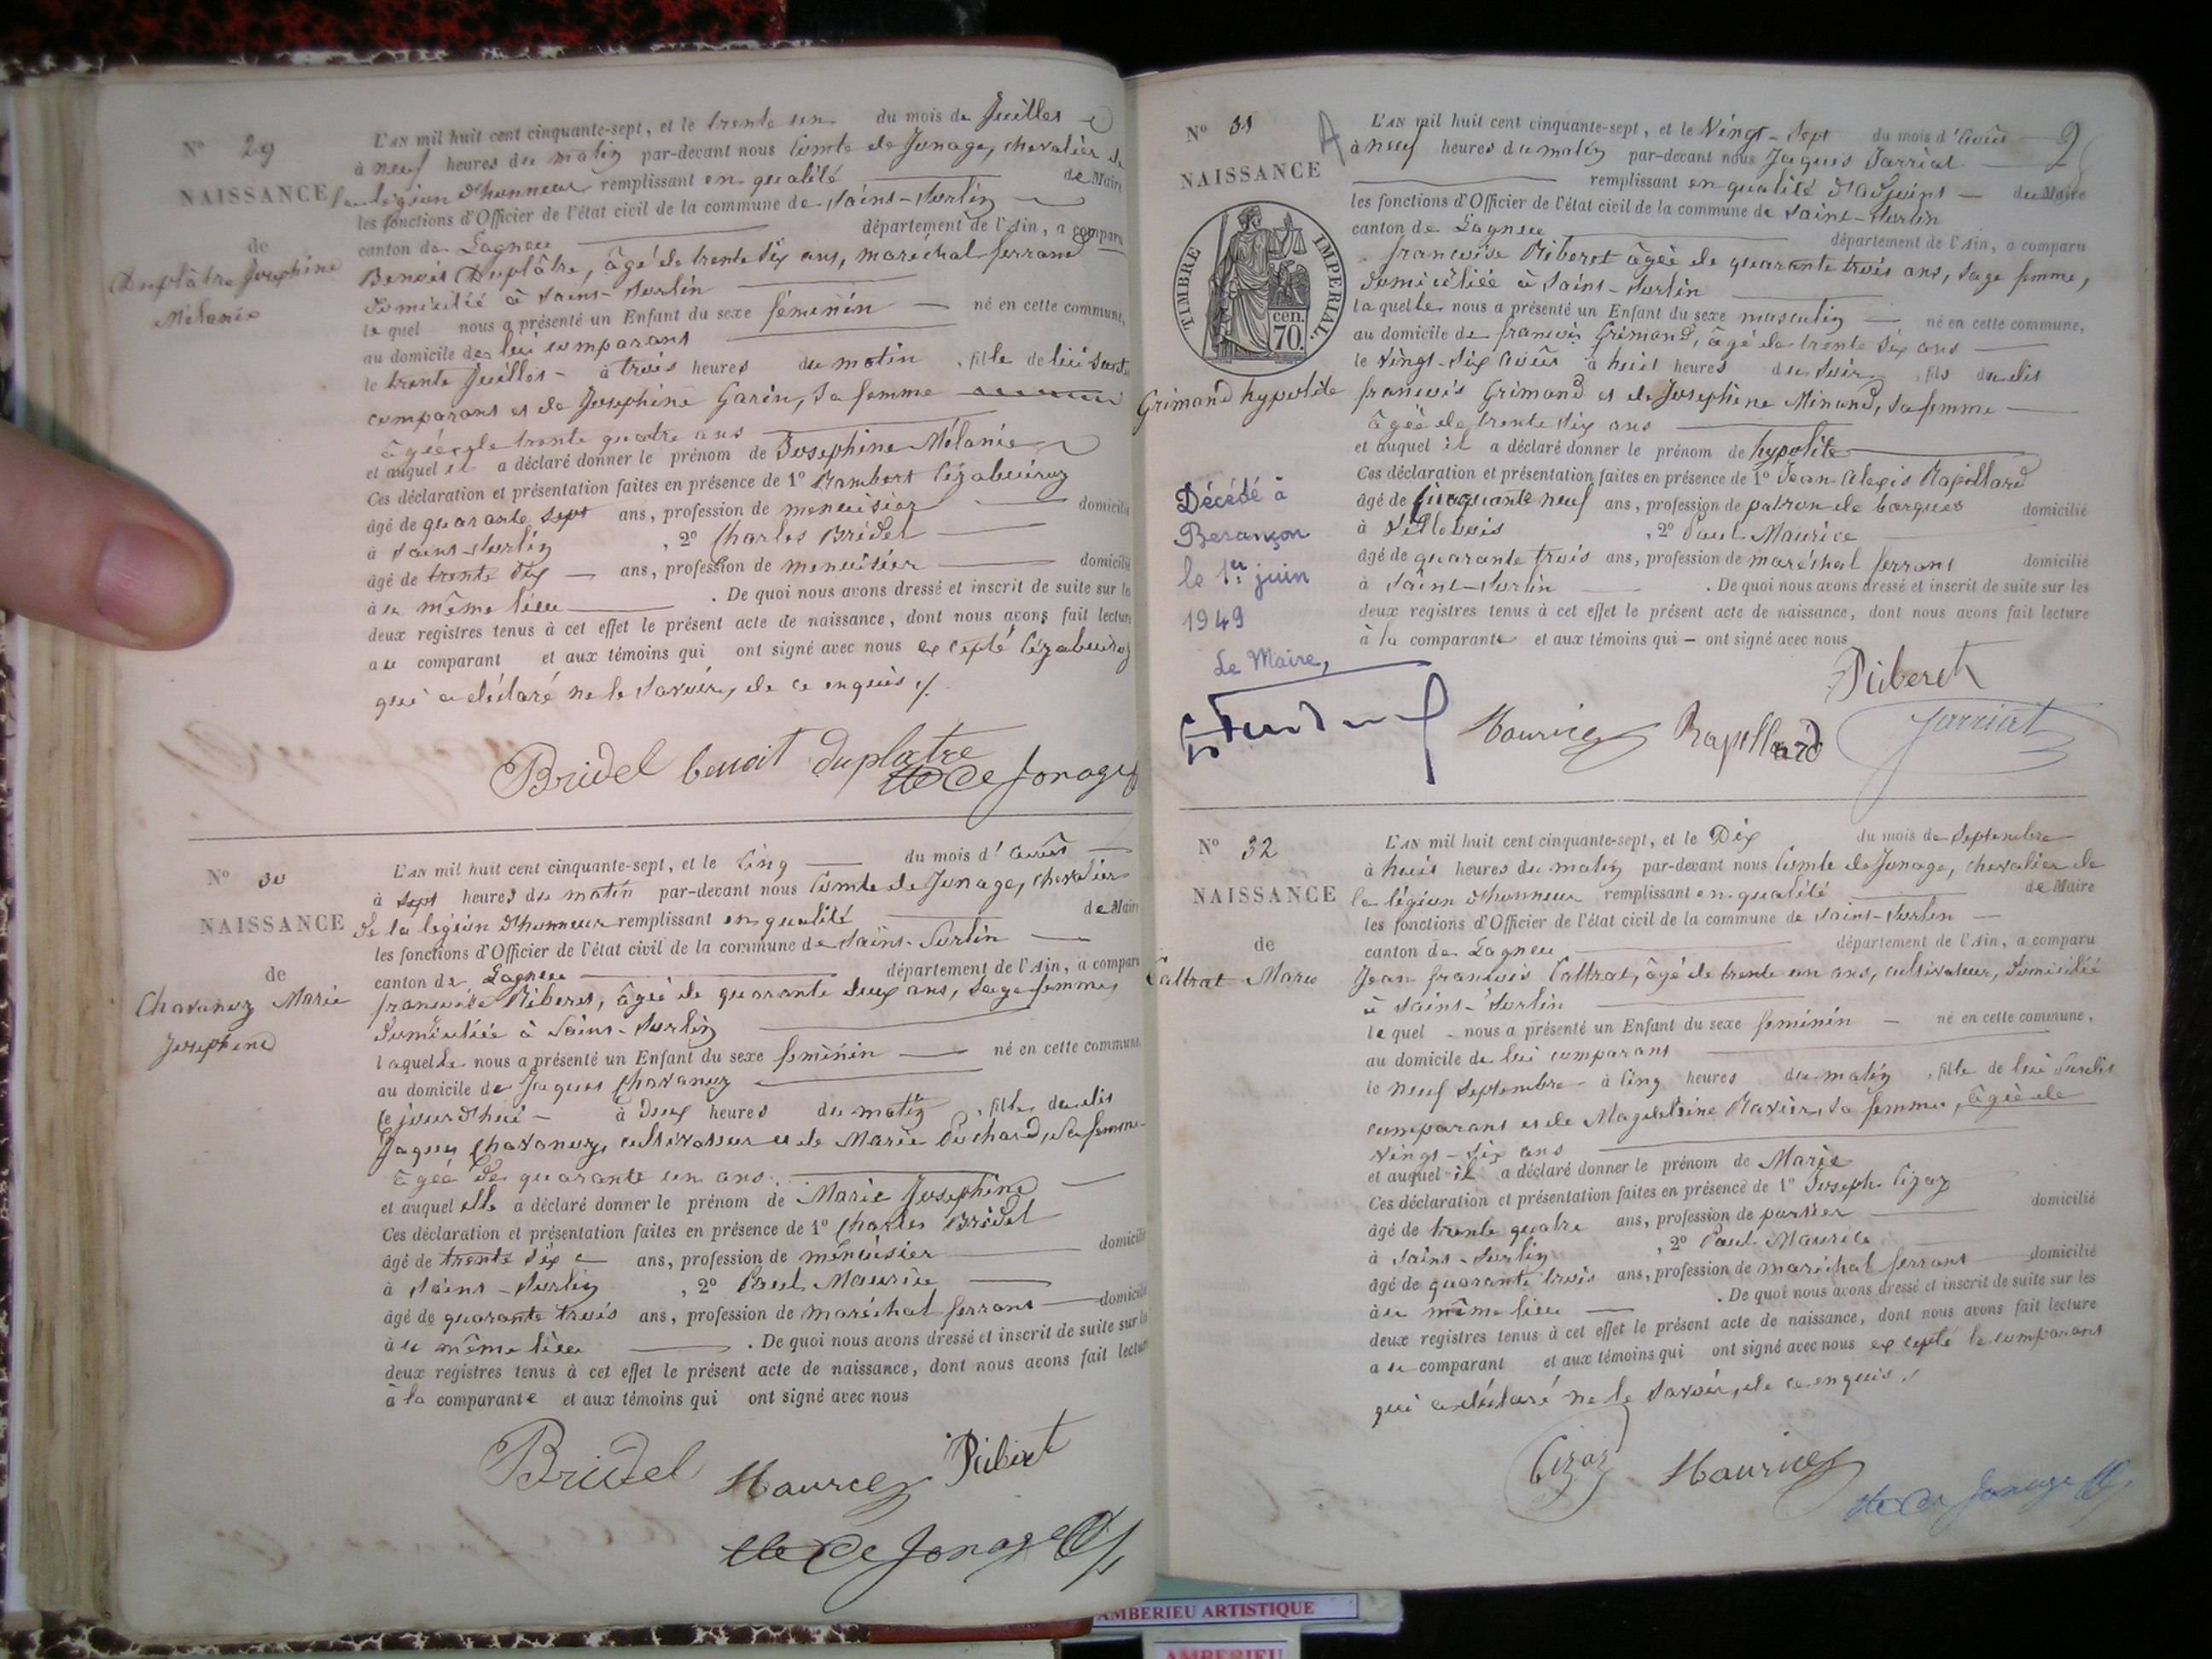 Nº 29
NAISSANCE
de
Duplâtre Josephine
Mélanie
L'AN mil huit cent cinquante-sept, et le trente un du mois de Juillet
à neuf heures du matin par-devant nous Comte de Jonage, chevalier de
la légion d'honneur remplissant en qualité de Maire
les fonctions d'Officier de l'état civil de la commune de Saint-Sorlin
canton de Lagneu département de l'Ain, a comparu
Benoit Duplâtre, âgé de trente six ans, maréchal ferrand
domicilié à Saint-Sorlin
lequel nous a présenté un Enfant du sexe féminin né en cette commune,
au domicile de lui comparant
le trente Juillet à trois heures du matin, fille de lui susdit
comparant et de Josephine Garin, sa femme
âgée de trente quatre ans
et auquel il a déclaré donner le prénom de Josephine Mélanie
Ces déclaration et présentation faites en présence de 1º Rambert
âgé de quarante sept ans, profession de menuisier domicilié
à Saint-Sorlin, 2º Charles Bridel
âgé de trente six ans, profession de menuisier domicilié
à ce même lieu. De quoi nous avons dressé et inscrit de suite sur les
deux registres tenus à cet effet le présent acte de naissance, dont nous avons fait lecture
au comparant et aux témoins qui ont signé avec nous excepté
qui a déclaré ne le savoir, de ce enquis ./.
Bridel benoit duplatre
Cte de Jonage
Nº 30
NAISSANCE
de
Chavanoz Marie
Josephine
L'AN mil huit cent cinquante-sept, et le cinq du mois d'août
à sept heures du matin par-devant nous Comte de Jonage, chevalier
de la légion d'honneur remplissant en qualité de Maire
les fonctions d'Officier de l'état civil de la commune de Saint-Sorlin
canton de Lagneu département de l'Ain, a comparu
françoise Riberet, âgée de quarante deux ans, sage femme,
domiciliée à Saint-Sorlin
laquelle nous a présenté un Enfant du sexe féminin né en cette commune,
au domicile de Jaques Chavanoz
ce jourd'hui à deux heures du matin, fille du dit
Jaques Chavanoz, cultivateur et de Marie Puchard, sa femme
âgée de quarante un ans.
et auquel elle a déclaré donner le prénom de Marie Josephine
Ces déclaration et présentation faites en présence de 1º Charles Bridel
âgé de trente six ans, profession de menuisier domicilié
à Saint-Sorlin, 2º Paul Maurice
âgé de quarante trois ans, profession de maréchal ferrant domicilié
à ce même lieu. De quoi nous avons dressé et inscrit de suite sur les
deux registres tenus à cet effet le présent acte de naissance, dont nous avons fait lecture
à la comparante et aux témoins qui ont signé avec nous
Bridel Maurice Riberet
Cte de Jonage
Nº 31
NAISSANCE
TIMBRE IMPERIAL
cen.
70.
Grimand hypolite
Décédé à
Besançon
le 1er juin
1949
Le Maire,
L'AN mil huit cent cinquante-sept, et le Vingt-Sept du mois d'août
à neuf heures du matin par-devant nous Jaques Jarriat
remplissant en qualité d'adjoint du Maire
les fonctions d'Officier de l'état civil de la commune de Saint-Sorlin
canton de Lagneu département de l'Ain, a comparu
françoise Riberet âgée de quarante trois ans, sage femme,
domiciliée à Saint-Sorlin
laquelle nous a présenté un Enfant du sexe masculin né en cette commune,
au domicile de françois Grimand, âgé de trente six ans
le Vingt-Six août à huit heures du soir, fils du dit
françois Grimand et de Josephine Minand, sa femme
âgée de trente six ans
et auquel il a déclaré donner le prénom de hypolite
Ces déclaration et présentation faites en présence de 1º Jean Alexis Rapillard
âgé de cinquante neuf ans, profession de patron de barques domicilié
à Villebois, 2º Paul Maurice
âgé de quarante trois ans, profession de maréchal ferrant domicilié
à Saint-Sorlin. De quoi nous avons dressé et inscrit de suite sur les
deux registres tenus à cet effet le présent acte de naissance, dont nous avons fait lecture
à la comparante et aux témoins qui ont signé avec nous
Riberet
Maurice Rapillard Jarriat
Nº 32
NAISSANCE
de
Cattrat Marie
L'AN mil huit cent cinquante-sept, et le Dix du mois de Septembre
à huit heures du matin par-devant nous Comte de Jonage, chevalier de
la légion d'honneur remplissant en qualité de Maire
les fonctions d'Officier de l'état civil de la commune de Saint-Sorlin
canton de Lagneu département de l'Ain, a comparu
Jean françois Cattrat, âgé de trente un ans, cultivateur, domicilié
à Saint-Sorlin
lequel nous a présenté un Enfant du sexe féminin né en cette commune,
au domicile de lui comparant
le neuf Septembre à cinq heures du matin, fille de lui susdit
comparant et de Magdeleine Ravier, sa femme, âgée de
Vingt-six ans
et auquel il a déclaré donner le prénom de Marie
Ces déclaration et présentation faites en présence de 1º Joseph Cizoz
âgé de trente quatre ans, profession de portier domicilié
à Saint-Sorlin, 2º Paul Maurice
âgé de quarante trois ans, profession de maréchal ferrant domicilié
à ce même lieu. De quoi nous avons dressé et inscrit de suite sur les
deux registres tenus à cet effet le présent acte de naissance, dont nous avons fait lecture
au comparant et aux témoins qui ont signé avec nous excepté le comparant
qui a déclaré ne le savoir, de ce enquis ./.
Cizoz Maurice
Cte de Jonage
AMBERIEU ARTISTIQUE
AMBERIEU